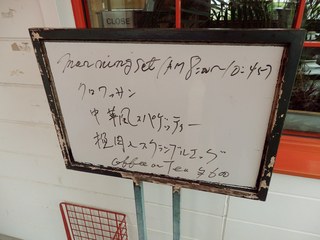 CLOSE
morning set (AM 8:00〜10:45)
クロワッサン
中華風スパゲッティー
スクランブルエッグ
coffee or Tea ¥600